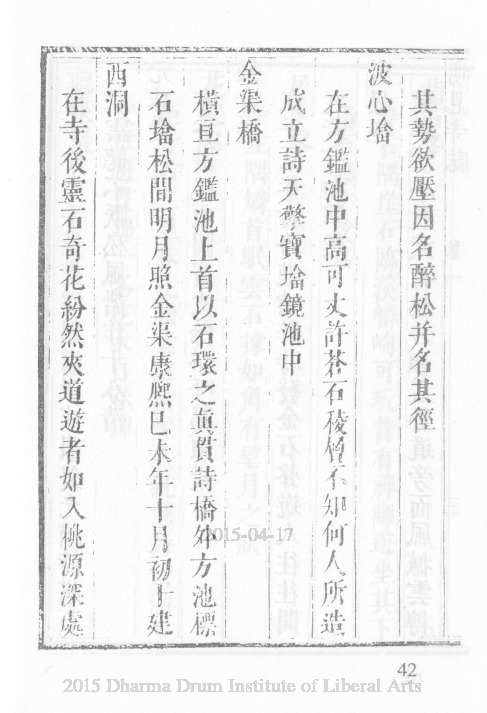 其勢欲壓因名醉松并名其徑
波心㙮
在方鑑池中高可丈許蒼石稜層不知何人所造
成立詩天擎寶㙮鏡池中
金渠橋
橫亘方鑑池上首以石環之真貫詩橋外方池標
石㙮松間明月照金渠康熙巳未年十月初十建
西洞
在寺後靈石奇花紛然夾道遊者如入桃源深處
2015-04-17
42
2015 Dharma Drum Institute of Liberal Arts